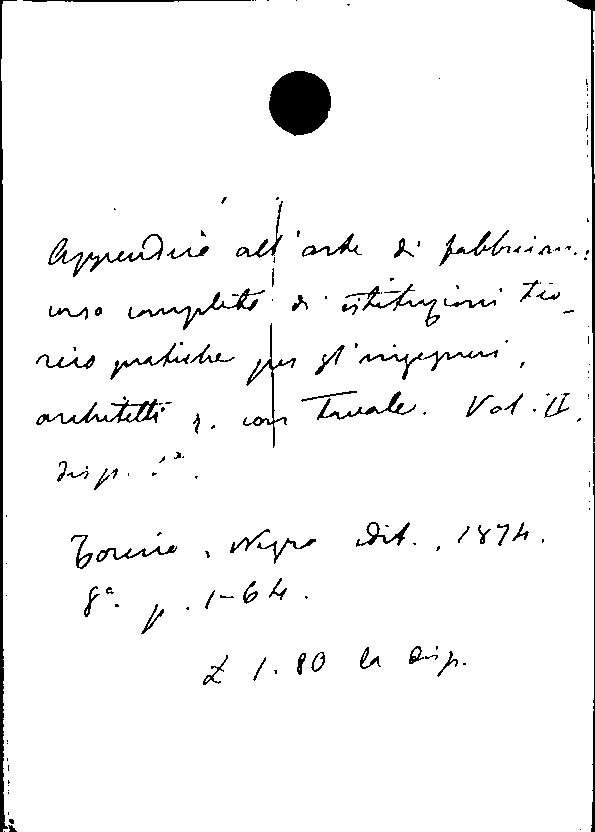 Appendice all'arte di fabbricare:
corso completo di istituzioni teo-
rico pratiche per gl'ingegneri,
architetti &. con Tavole. Vol. II.
disp. 1ª.
Torino, Negro edit., 1874.
8ª. p. 1-64.
£ 1.80 la disp.